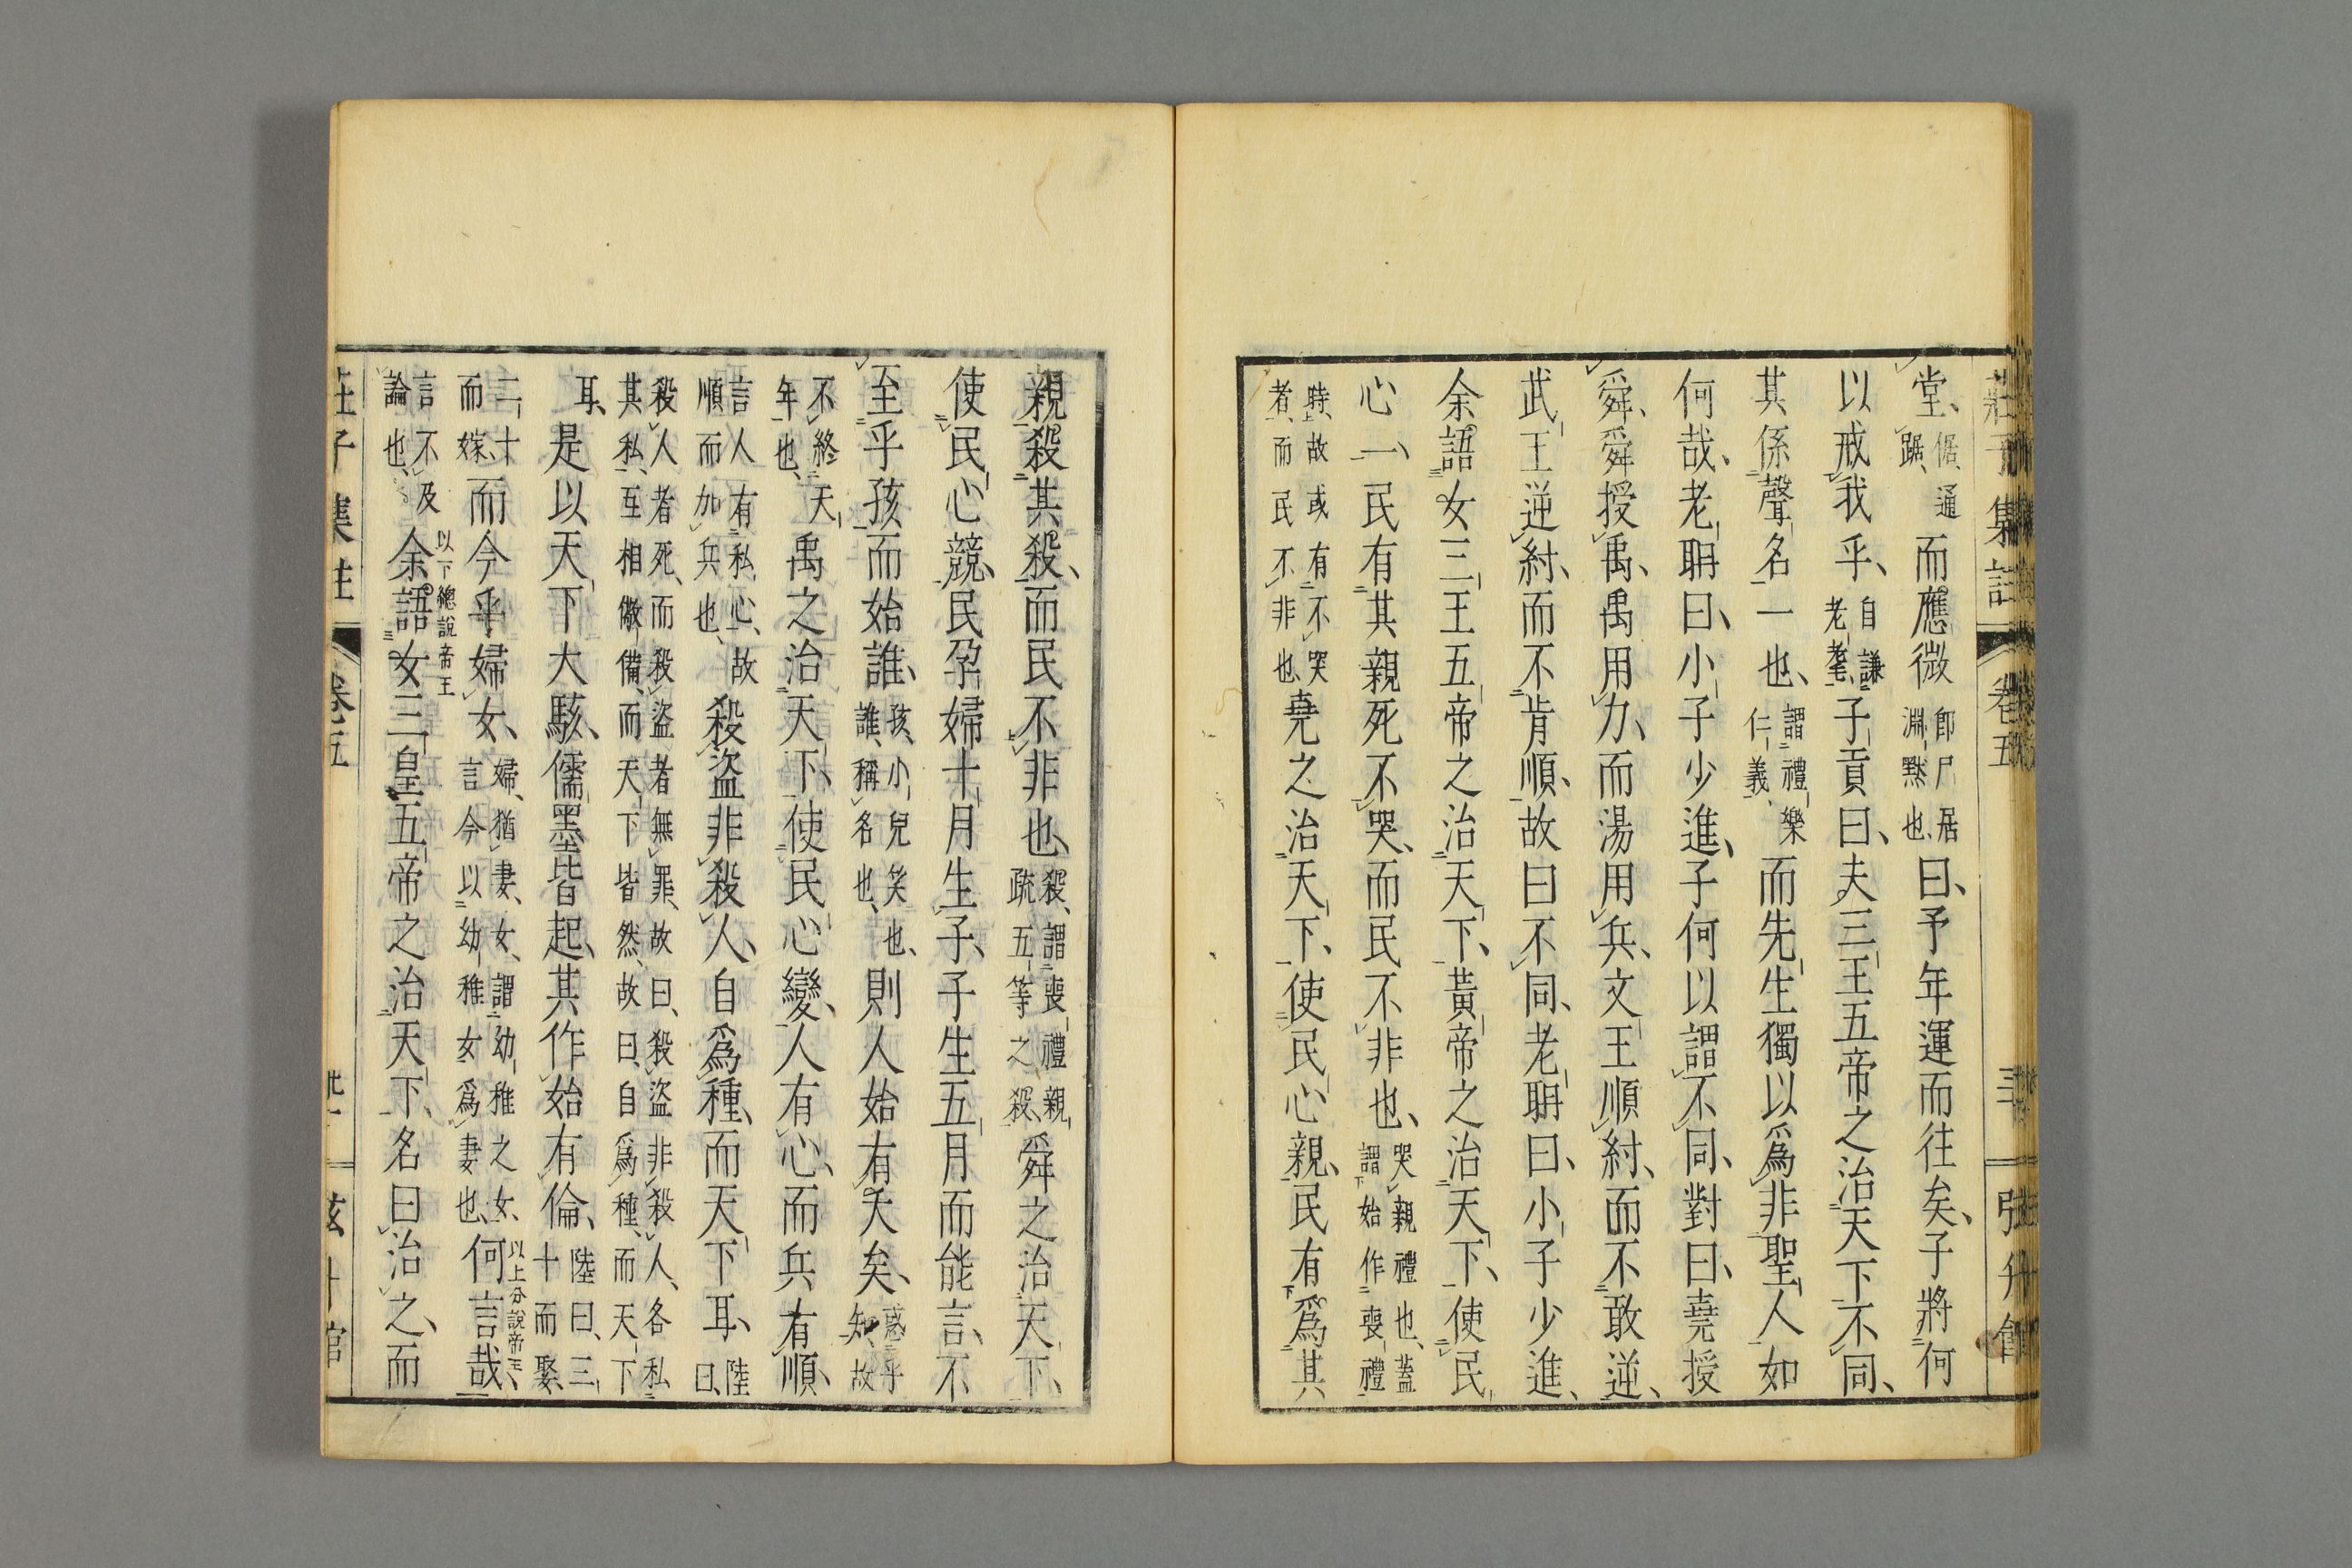 莊子集註 卷五 三十 弦升館
堂、倨、通踞、而應微卽尸居淵默也、曰、予年運而往矣、子將何
以戒我乎、自謙老耄、子貢曰、夫三王五帝之治天下不同、
其係聲名一也、謂禮樂仁義、而先生獨以爲非聖人如
何哉、老聃曰、小子少進、子何以謂不同、對曰、堯授
舜、舜授禹、禹用力、而湯用兵、文王順紂、而不敢逆、
武王逆紂、而不肯順、故曰不同、老聃曰、小子少進、
余語女三王五帝之治天下、黃帝之治天下、使民
心一、民有其親死不哭、而民不非也、哭親禮也、蓋謂始作喪禮
時、故或有不哭者、而民不非也、堯之治天下、使民心親、民有爲其
親殺其殺、而民不非也、殺、謂喪禮親疏五等之殺、舜之治天下、
使民心競、民孕婦十月生子、子生五月而能言、不
至乎孩而始誰、孩、小兒笑也、誰、稱名也、則人始有夭矣、惑乎知、故
不終天年也、禹之治天下、使民心變、人有心、而兵有順、
言人有私心、故順而加兵也、殺盜非殺人、自爲種、而天下耳、陸曰、
殺人者死、而殺盜者無罪、故曰、殺盜非殺人、各私其私、互相儆備、而天下皆然、故曰、自爲種、而天下
耳、是以天下大駭、儒墨皆起、其作始有倫、陸曰、三十而娶、
二十而嫁、而今乎婦女、婦、猶妻、女、謂幼稚之女、言今以幼稚女爲妻也、何言哉、以上分說帝王、
言不及論也、余語女三皇五帝之治天下、名曰治之、而以下總說帝王
莊子集註 卷五